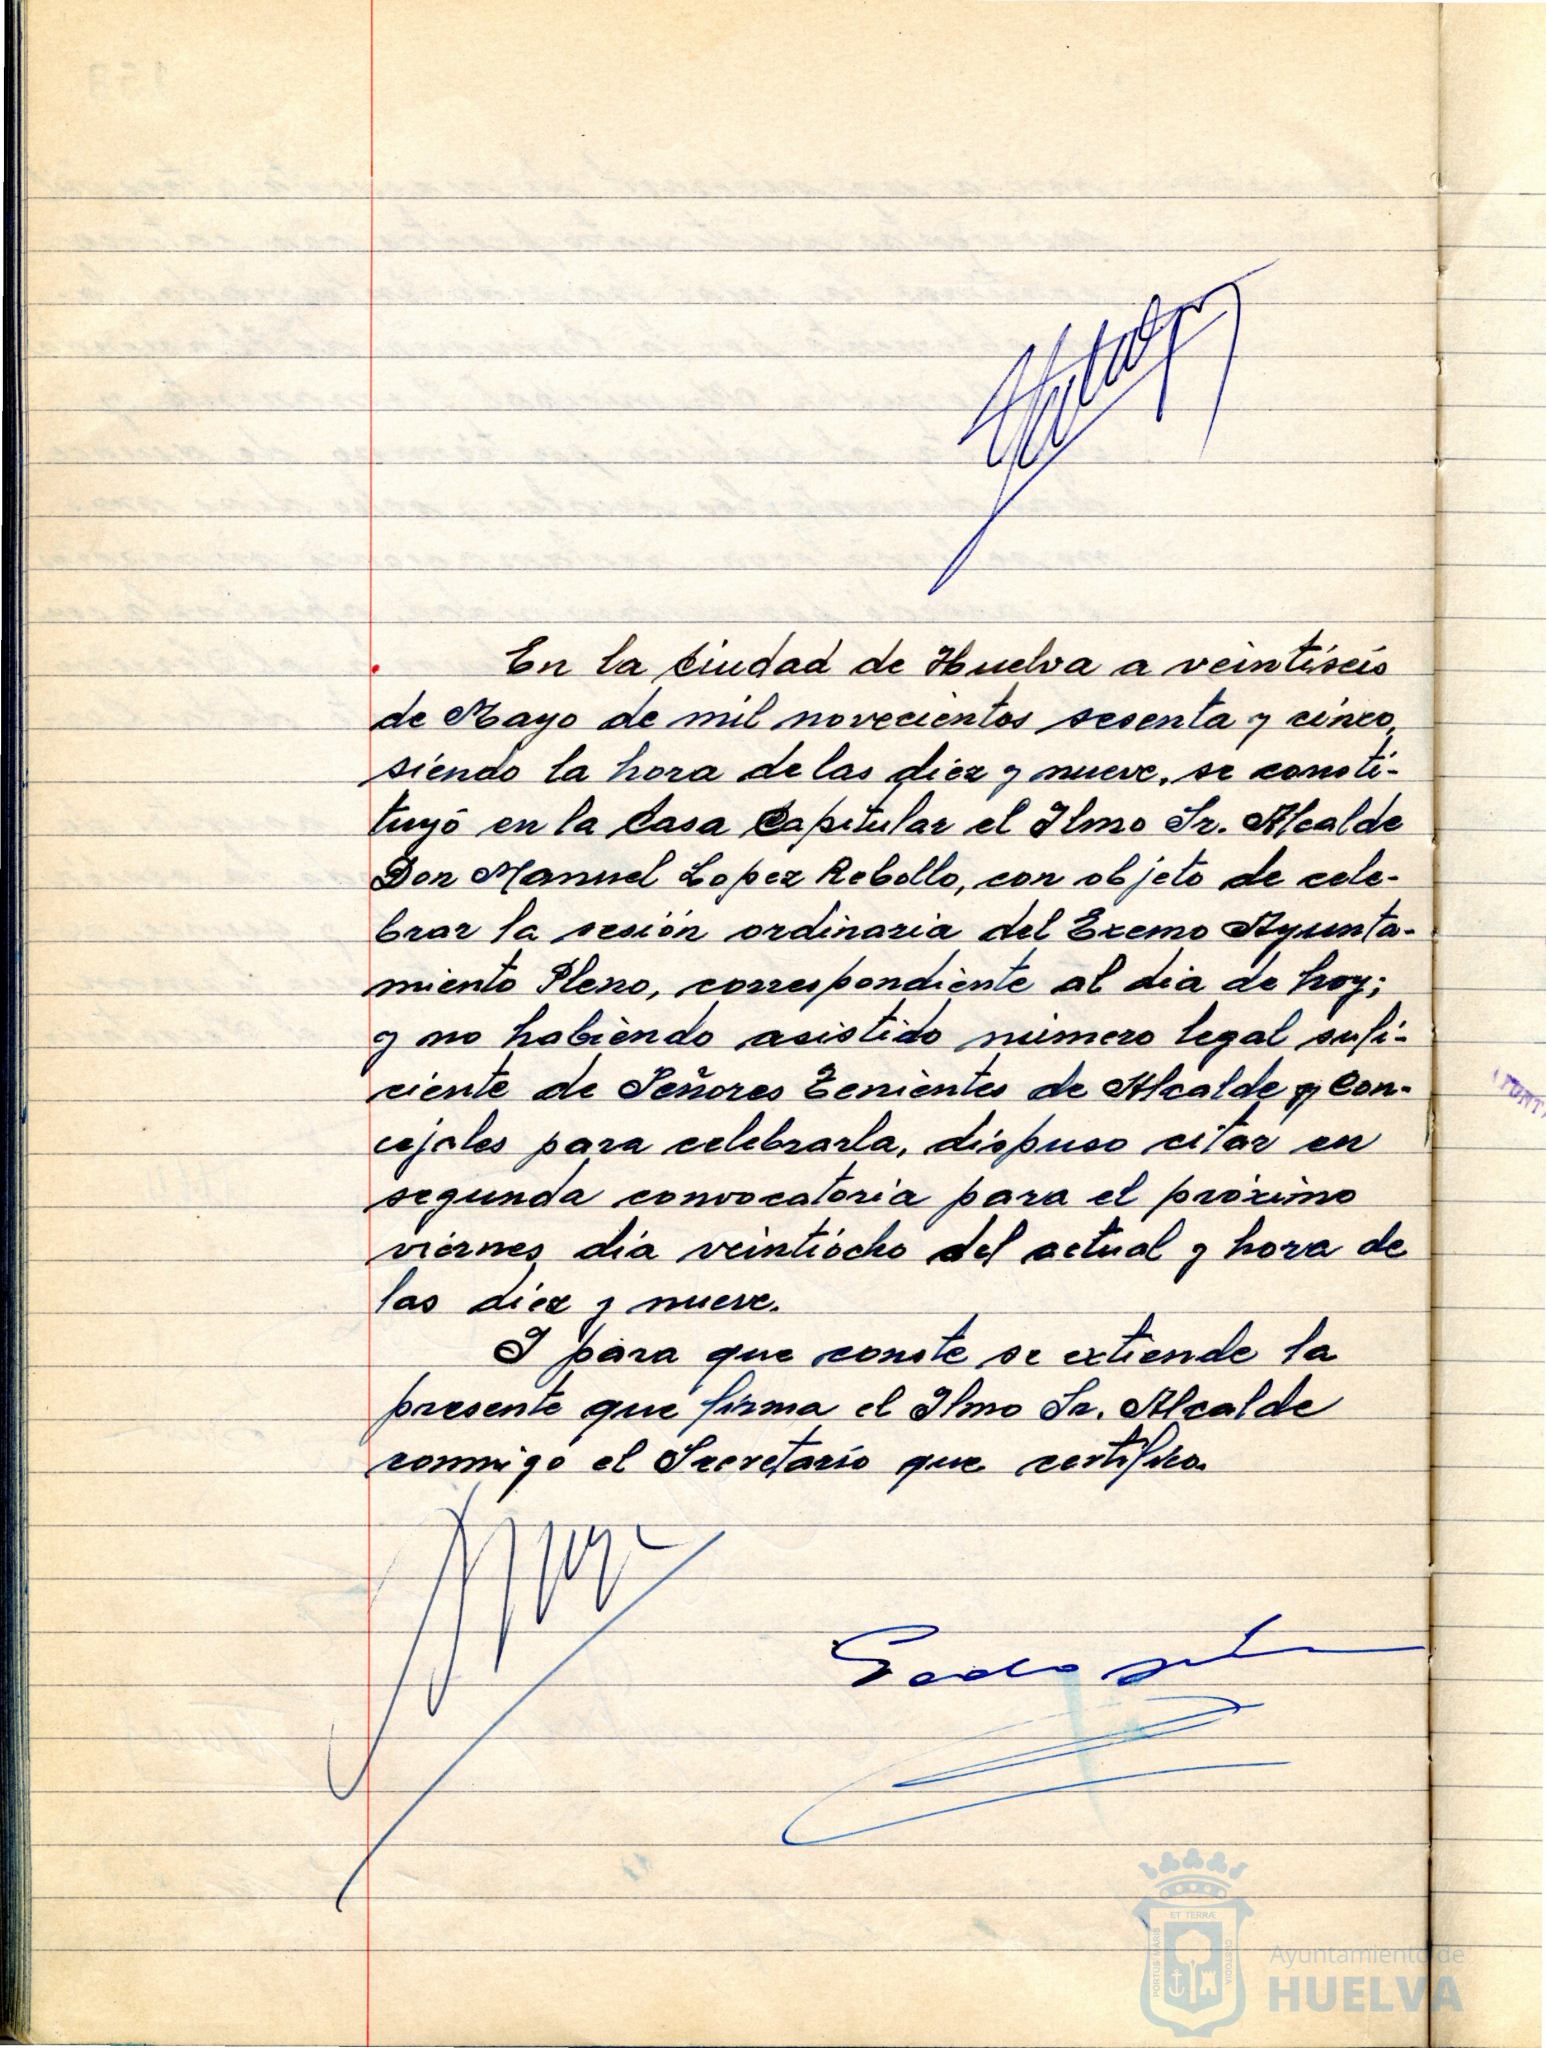 En la Ciudad de Huelva a veintiseis
de Mayo de mil novecientos sesenta y cinco,
siendo la hora de las diez y nueve, se consti-
tuyó en la Casa Capitular el Ilmo Sr. Alcalde
Don Manuel Lopez Rebollo, con objeto de cele-
brar la sesión ordinaria del Excmo Ayunta-
miento Pleno, correspondiente al dia de hoy;
y no habiendo asistido número legal sufi-
ciente de Señores Tenientes de Alcalde y Con-
cejales para celebrarla, dispuso citar en
segunda convocatoria para el próximo
viernes dia veintiocho del actual y hora de
las diez y nueve.
I para que conste se extiende la
presente que firma el Ilmo Sr. Alcalde
conmigo el Secretario que certifico.
ET TERRÆ
PORTUS MARIS
CUSTODIA
Ayuntamiento de
HUELVA